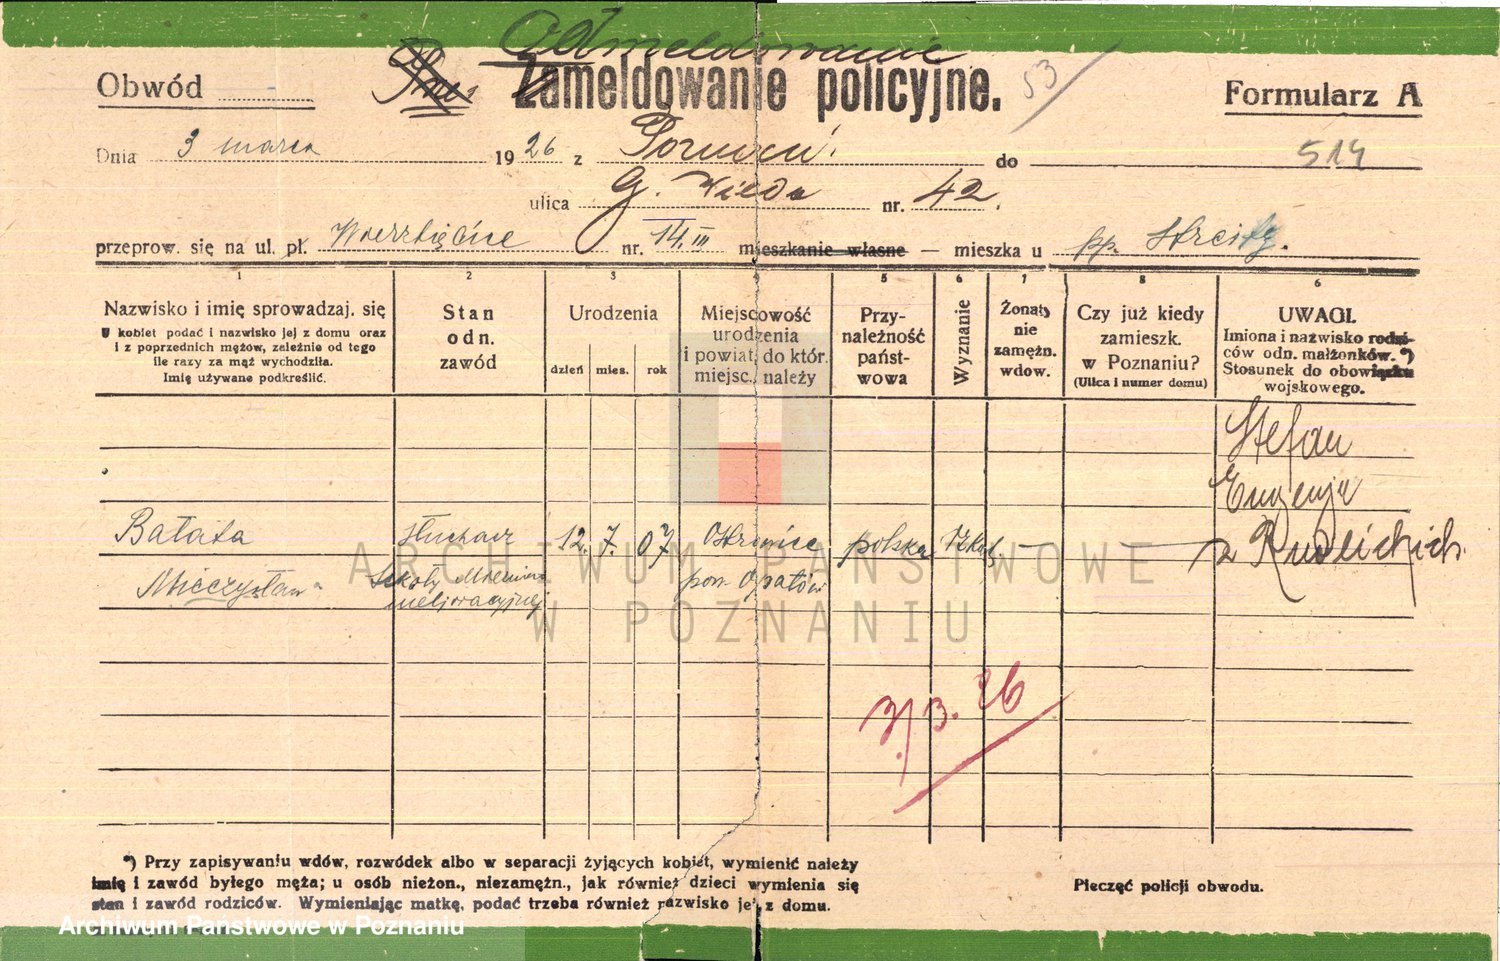 Odmeldowanie
Obwód Zameldowanie policyjne. 53 Formularz A
Dnia 3 marca 1926 z Poznań do 514
ulica G. Wilda nr. 42.
przeprow. się na ul. pl. Wierzbięcice nr. 14. III mieszkanie własne — mieszka u pp.
1 2 3 4 5 6 7 8 6
Nazwisko i imię sprowadzaj. się
U kobiet podać i nazwisko jej z domu oraz
i z poprzednich mężów, zależnie od tego
ile razy za mąż wychodziła.
Imię używane podkreślić.
Stan
odn.
zawód
Urodzenia
dzień mies. rok
Miejscowość
urodzenia
i powiat, do któr.
miejsc. należy
Przy-
należność
państ-
wowa
Wyznanie
Żonaty
nie
zamężn.
wdow.
Czy już kiedy
zamieszk.
w Poznaniu?
(Ulica i numer domu)
UWAGI.
Imiona i nazwisko rodzi-
ców odn. małżonków. *)
Stosunek do obowiązku
wojskowego.
Stefan
Eugenja
Batata słuchacz 12. 7. 07 Ostrowiec polska rzkat. — — z
Mieczysław Szkoły Miernicz pow. Opatów
melioracyjnej
ARCHIWUM PAŃSTWOWE
W POZNANIU
3/3. 26
*) Przy zapisywaniu wdów, rozwódek albo w separacji żyjących kobiet, wymienić należy
imię i zawód byłego męża; u osób nieżon., niezamężn., jak również dzieci wymienia się
stan i zawód rodziców. Wymieniając matkę, podać trzeba również nazwisko jej z domu.
Pieczęć policji obwodu.
Archiwum Państwowe w Poznaniu